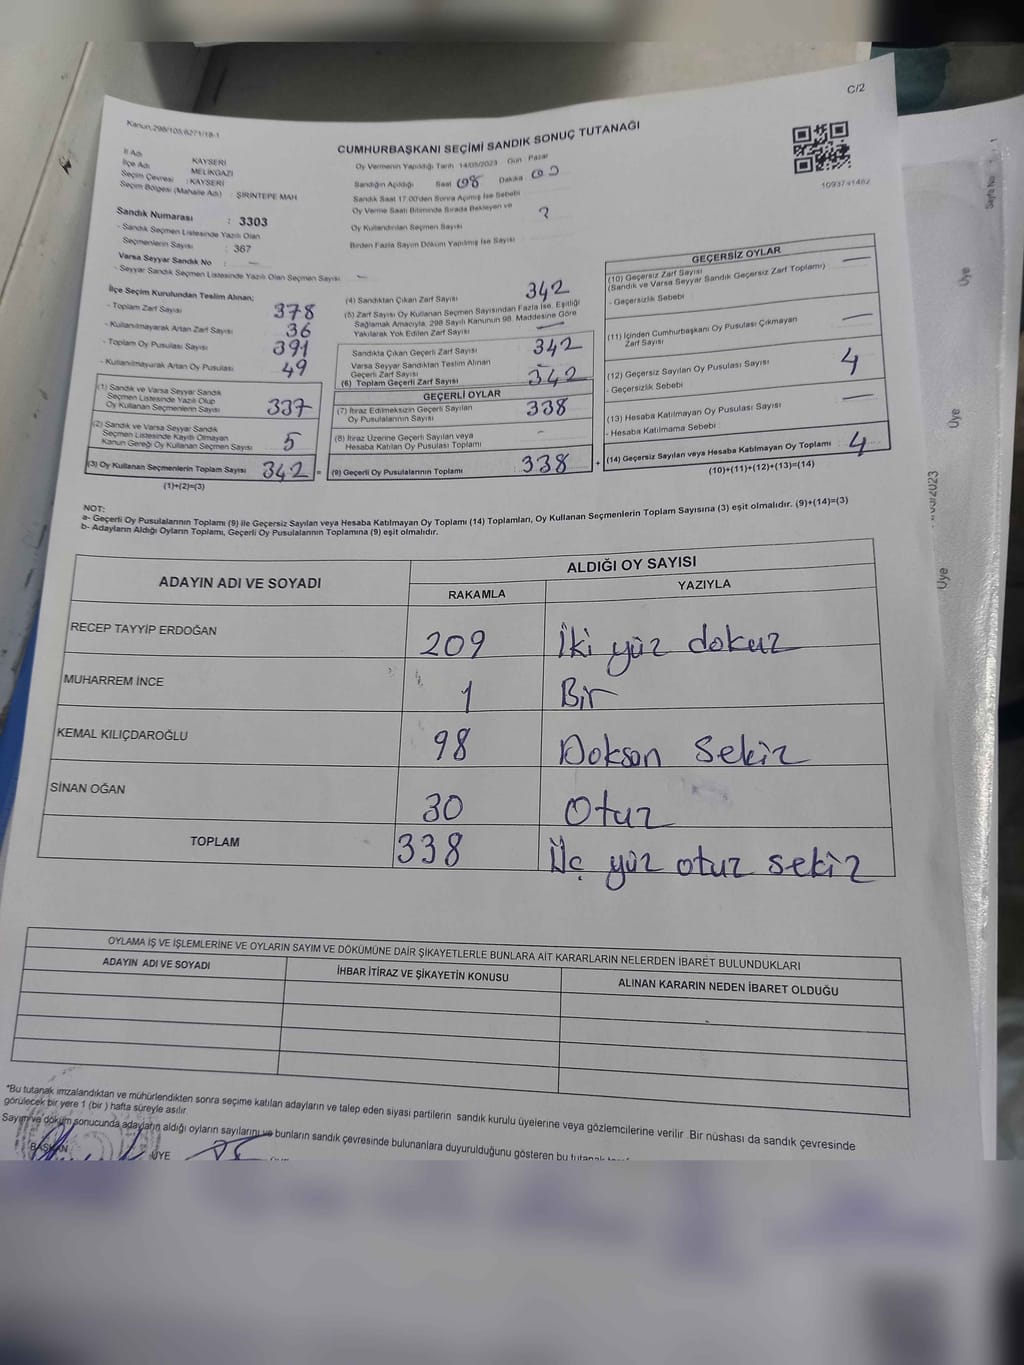 C/2
Kanun.298/105/6271/18-1
CUMHURBAŞKANI SEÇİMİ SANDIK SONUÇ TUTANAĞI
İl Adı KAYSERİ
İlçe Adı MELİKGAZİ
Seçim Çevresi : KAYSERİ
Seçim Bölgesi (Mahalle Adı) : ŞİRİNTEPE MAH
Oy Vermenin Yapıldığı Tarih 14/05/2023 Gün Pazar
Sandığın Açıldığı Saat 08 Dakika 00
Sandık Saat 17.00'den Sonra Açımış İse Sebebi
Oy Verme Saati Bitiminde Sırada Bekleyen ve
Oy Kullandırılan Seçmen Sayısı
Birden Fazla Sayım Döküm Yapılmış İse Sayısı
1093741482
Sandık Numarası : 3303
- Sandık Seçmen Listesinde Yazılı Olan
Seçmenlerin Sayısı : 367
Varsa Seyyar Sandık No : —
- Seyyar Sandık Seçmen Listesinde Yazılı Olan Seçmen Sayısı —
İlçe Seçim Kurulundan Teslim Alınan;
- Toplam Zarf Sayısı 378
- Kullanılmayarak Artan Zarf Sayısı 36
- Toplam Oy Pusulası Sayısı 391
- Kullanılmayarak Artan Oy Pusulası 49
(1) Sandık ve Varsa Seyyar Sandık
Seçmen Listesinde Yazılı Olup
Oy Kullanan Seçmenlerin Sayısı 337
(2) Sandık ve Varsa Seyyar Sandık
Seçmen Listesinde Kayıtlı Olmayan
Kanun Gereği Oy Kullanan Seçmen Sayısı 5
(3) Oy Kullanan Seçmenlerin Toplam Sayısı 342 =
(1)+(2)=(3)
(4) Sandıktan Çıkan Zarf Sayısı 342
(5) Zarf Sayısı Oy Kullanan Seçmen Sayısından Fazla İse, Eşitliği
Sağlamak Amacıyla, 298 Sayılı Kanunun 98. Maddesine Göre
Yakılarak Yok Edilen Zarf Sayısı —
Sandıkta Çıkan Geçerli Zarf Sayısı 342
Varsa Seyyar Sandıktan Teslim Alınan
Geçerli Zarf Sayısı —
(6) Toplam Geçerli Zarf Sayısı 342
GEÇERLİ OYLAR
(7) İtiraz Edilmeksizin Geçerli Sayılan
Oy Pusulalarının Sayısı 338
(8) İtiraz Üzerine Geçerli Sayılan veya
Hesaba Katılan Oy Pusulası Toplamı -
(9) Geçerli Oy Pusulalarının Toplamı 338 +
GEÇERSİZ OYLAR
(10) Geçersiz Zarf Sayısı —
(Sandık ve Varsa Seyyar Sandık Geçersiz Zarf Toplamı)
- Geçersizlik Sebebi
(11) İçinden Cumhurbaşkanı Oy Pusulası Çıkmayan
Zarf Sayısı —
(12) Geçersiz Sayılan Oy Pusulası Sayısı 4
- Geçersizlik Sebebi
(13) Hesaba Katılmayan Oy Pusulası Sayısı —
- Hesaba Katılmama Sebebi
(14) Geçersiz Sayılan veya Hesaba Katılmayan Oy Toplamı 4
(10)+(11)+(12)+(13)=(14)
NOT:
a- Geçerli Oy Pusulalarının Toplamı (9) ile Geçersiz Sayılan veya Hesaba Katılmayan Oy Toplamı (14) Toplamları, Oy Kullanan Seçmenlerin Toplam Sayısına (3) eşit olmalıdır. (9)+(14)=(3)
b- Adayların Aldığı Oyların Toplamı, Geçerli Oy Pusulalarının Toplamına (9) eşit olmalıdır.
ADAYIN ADI VE SOYADI
ALDIĞI OY SAYISI
RAKAMLA YAZIYLA
RECEP TAYYİP ERDOĞAN 209 İki yüz dokuz
MUHARREM İNCE 1 Bir
KEMAL KILIÇDAROĞLU 98 Doksan Sekiz
SİNAN OĞAN 30 Otuz
TOPLAM 338 Üç yüz otuz sekiz
OYLAMA İŞ VE İŞLEMLERİNE VE OYLARIN SAYIM VE DÖKÜMÜNE DAİR ŞİKAYETLERLE BUNLARA AİT KARARLARIN NELERDEN İBARET BULUNDUKLARI
ADAYIN ADI VE SOYADI İHBAR İTİRAZ VE ŞİKAYETİN KONUSU ALINAN KARARIN NEDEN İBARET OLDUĞU
*Bu tutanak imzalandıktan ve mühürlendikten sonra seçime katılan adayların ve talep eden siyasi partilerin sandık kurulu üyelerine veya gözlemcilerine verilir. Bir nüshası da sandık çevresinde
görülecek bir yere 1 (bir ) hafta süreyle asılır.
Sayım ve döküm sonucunda adayların aldığı oyların sayılarını ve bunların sandık çevresinde bulunanlara duyurulduğunu gösteren bu tutanak
BAŞKAN ÜYE
Sayfa No
Üye
Üye
Üye